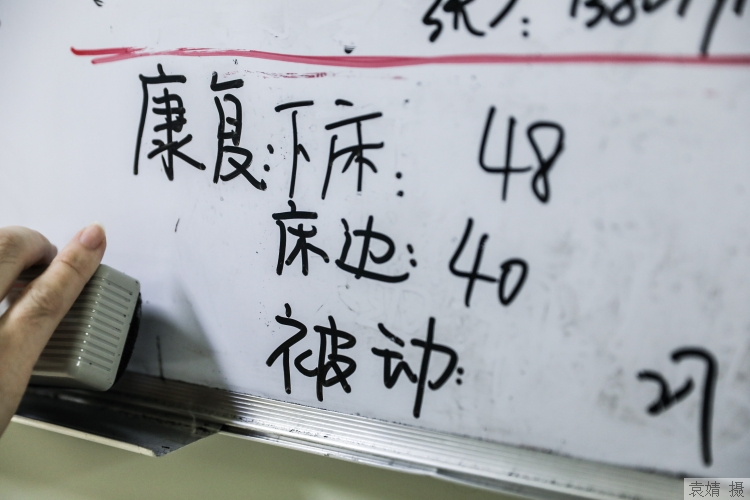 康复:下床: 48
床边: 40
被动: 27
袁婧 摄